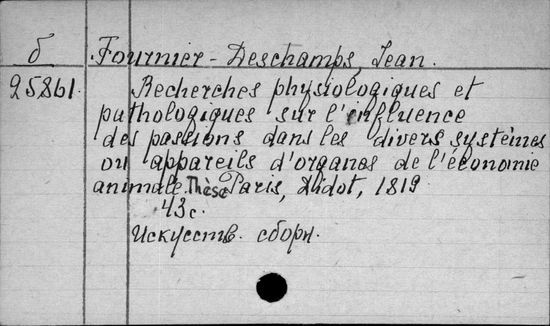 б Fournier-Deschamps, Jean.
25861. Recherches physiologiques et
pathologiques sur l'influence
des passions dans les divers systèmes
ou appareils d'organes de l'économie
animale. Thèse Paris, Didot, 1819
43с.
Искусств. сборн.